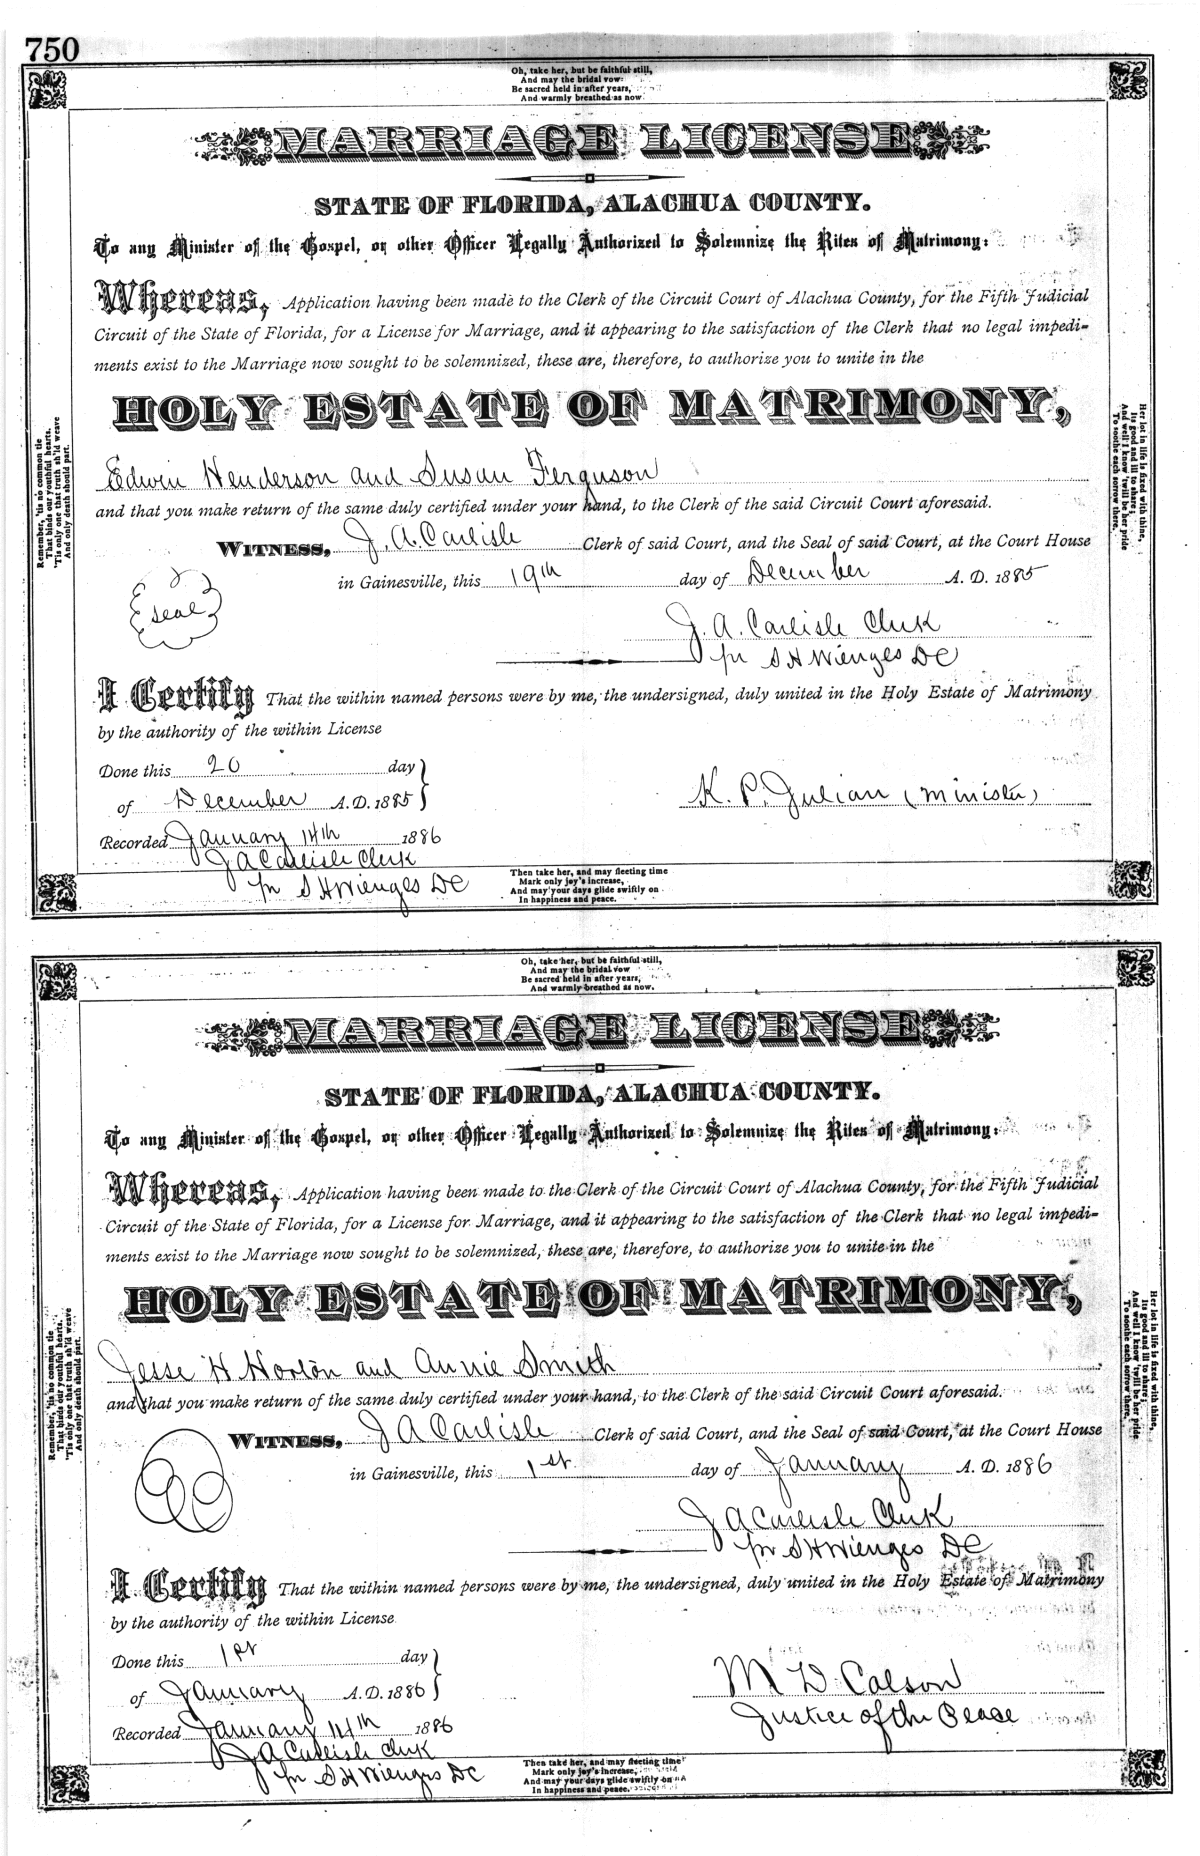 750
Oh, take her, but be faithful still,
And may the bridal vow
Be sacred held in after years,
And warmly breathed as now
MARRIAGE LICENSE
STATE OF FLORIDA, ALACHUA COUNTY.
To any Minister of the Gospel, or other Officer Legally Authorized to Solemnize the Rites of Matrimony:
Whereas, Application having been made to the Clerk of the Circuit Court of Alachua County, for the Fifth Judicial
Circuit of the State of Florida, for a License for Marriage, and it appearing to the satisfaction of the Clerk that no legal impedi-
ments exist to the Marriage now sought to be solemnized, these are, therefore, to authorize you to unite in the
HOLY ESTATE OF MATRIMONY,
Edwin Henderson and Susan Ferguson
and that you make return of the same duly certified under your hand, to the Clerk of the said Circuit Court aforesaid.
WITNESS, J. A. Carlisle Clerk of said Court, and the Seal of said Court, at the Court House
in Gainesville, this 19th day of December A. D. 1885
Seal
J. A. Carlisle Clerk
pr S H Wienges DC
I Certify That the within named persons were by me, the undersigned, duly united in the Holy Estate of Matrimony
by the authority of the within License
Done this 20 day
of December A. D. 1885
K. P. Julian (Minister)
Recorded January 14th 1886
J A Carlisle Clerk
pr S H Wienges DC
Remember, 'tis no common tie
That binds our youthful hearts.
'Tis only one that truth sh'ld weave
And only death should part.
Her lot in life is fixed with thine,
Its good and ill to share;
And well I know 'twill be her pride
To soothe each sorrow there.
Then take her, and may fleeting time
Mark only joy's increase,
And may your days glide swiftly on
In happiness and peace.
Oh, take her, but be faithful still,
And may the bridal vow
Be sacred held in after years,
And warmly breathed as now.
MARRIAGE LICENSE
STATE OF FLORIDA, ALACHUA COUNTY.
To any Minister of the Gospel, or other Officer Legally Authorized to Solemnize the Rites of Matrimony:
Whereas, Application having been made to the Clerk of the Circuit Court of Alachua County, for the Fifth Judicial
Circuit of the State of Florida, for a License for Marriage, and it appearing to the satisfaction of the Clerk that no legal impedi-
ments exist to the Marriage now sought to be solemnized, these are, therefore, to authorize you to unite in the
HOLY ESTATE OF MATRIMONY,
Jesse H Horton and Annie Smith
and that you make return of the same duly certified under your hand, to the Clerk of the said Circuit Court aforesaid.
WITNESS, J A Carlisle Clerk of said Court, and the Seal of said Court, at the Court House
in Gainesville, this 1st day of January A. D. 1886
J A Carlisle Clerk
pr S H Wienges DC
I Certify That the within named persons were by me, the undersigned, duly united in the Holy Estate of Matrimony
by the authority of the within License
Done this 1st day
of January A. D. 1886
M D Colson
Justice of the Peace
Recorded January 14th 1886
J A Carlisle Clerk
pr S H Wienges DC
Remember, 'tis no common tie
That binds our youthful hearts.
'Tis only one that truth sh'ld weave
And only death should part.
Her lot in life is fixed with thine,
Its good and ill to share;
And well I know 'twill be her pride
To soothe each sorrow there.
Then take her, and may fleeting time
Mark only joy's increase,
And may your days glide swiftly on
In happiness and peace.